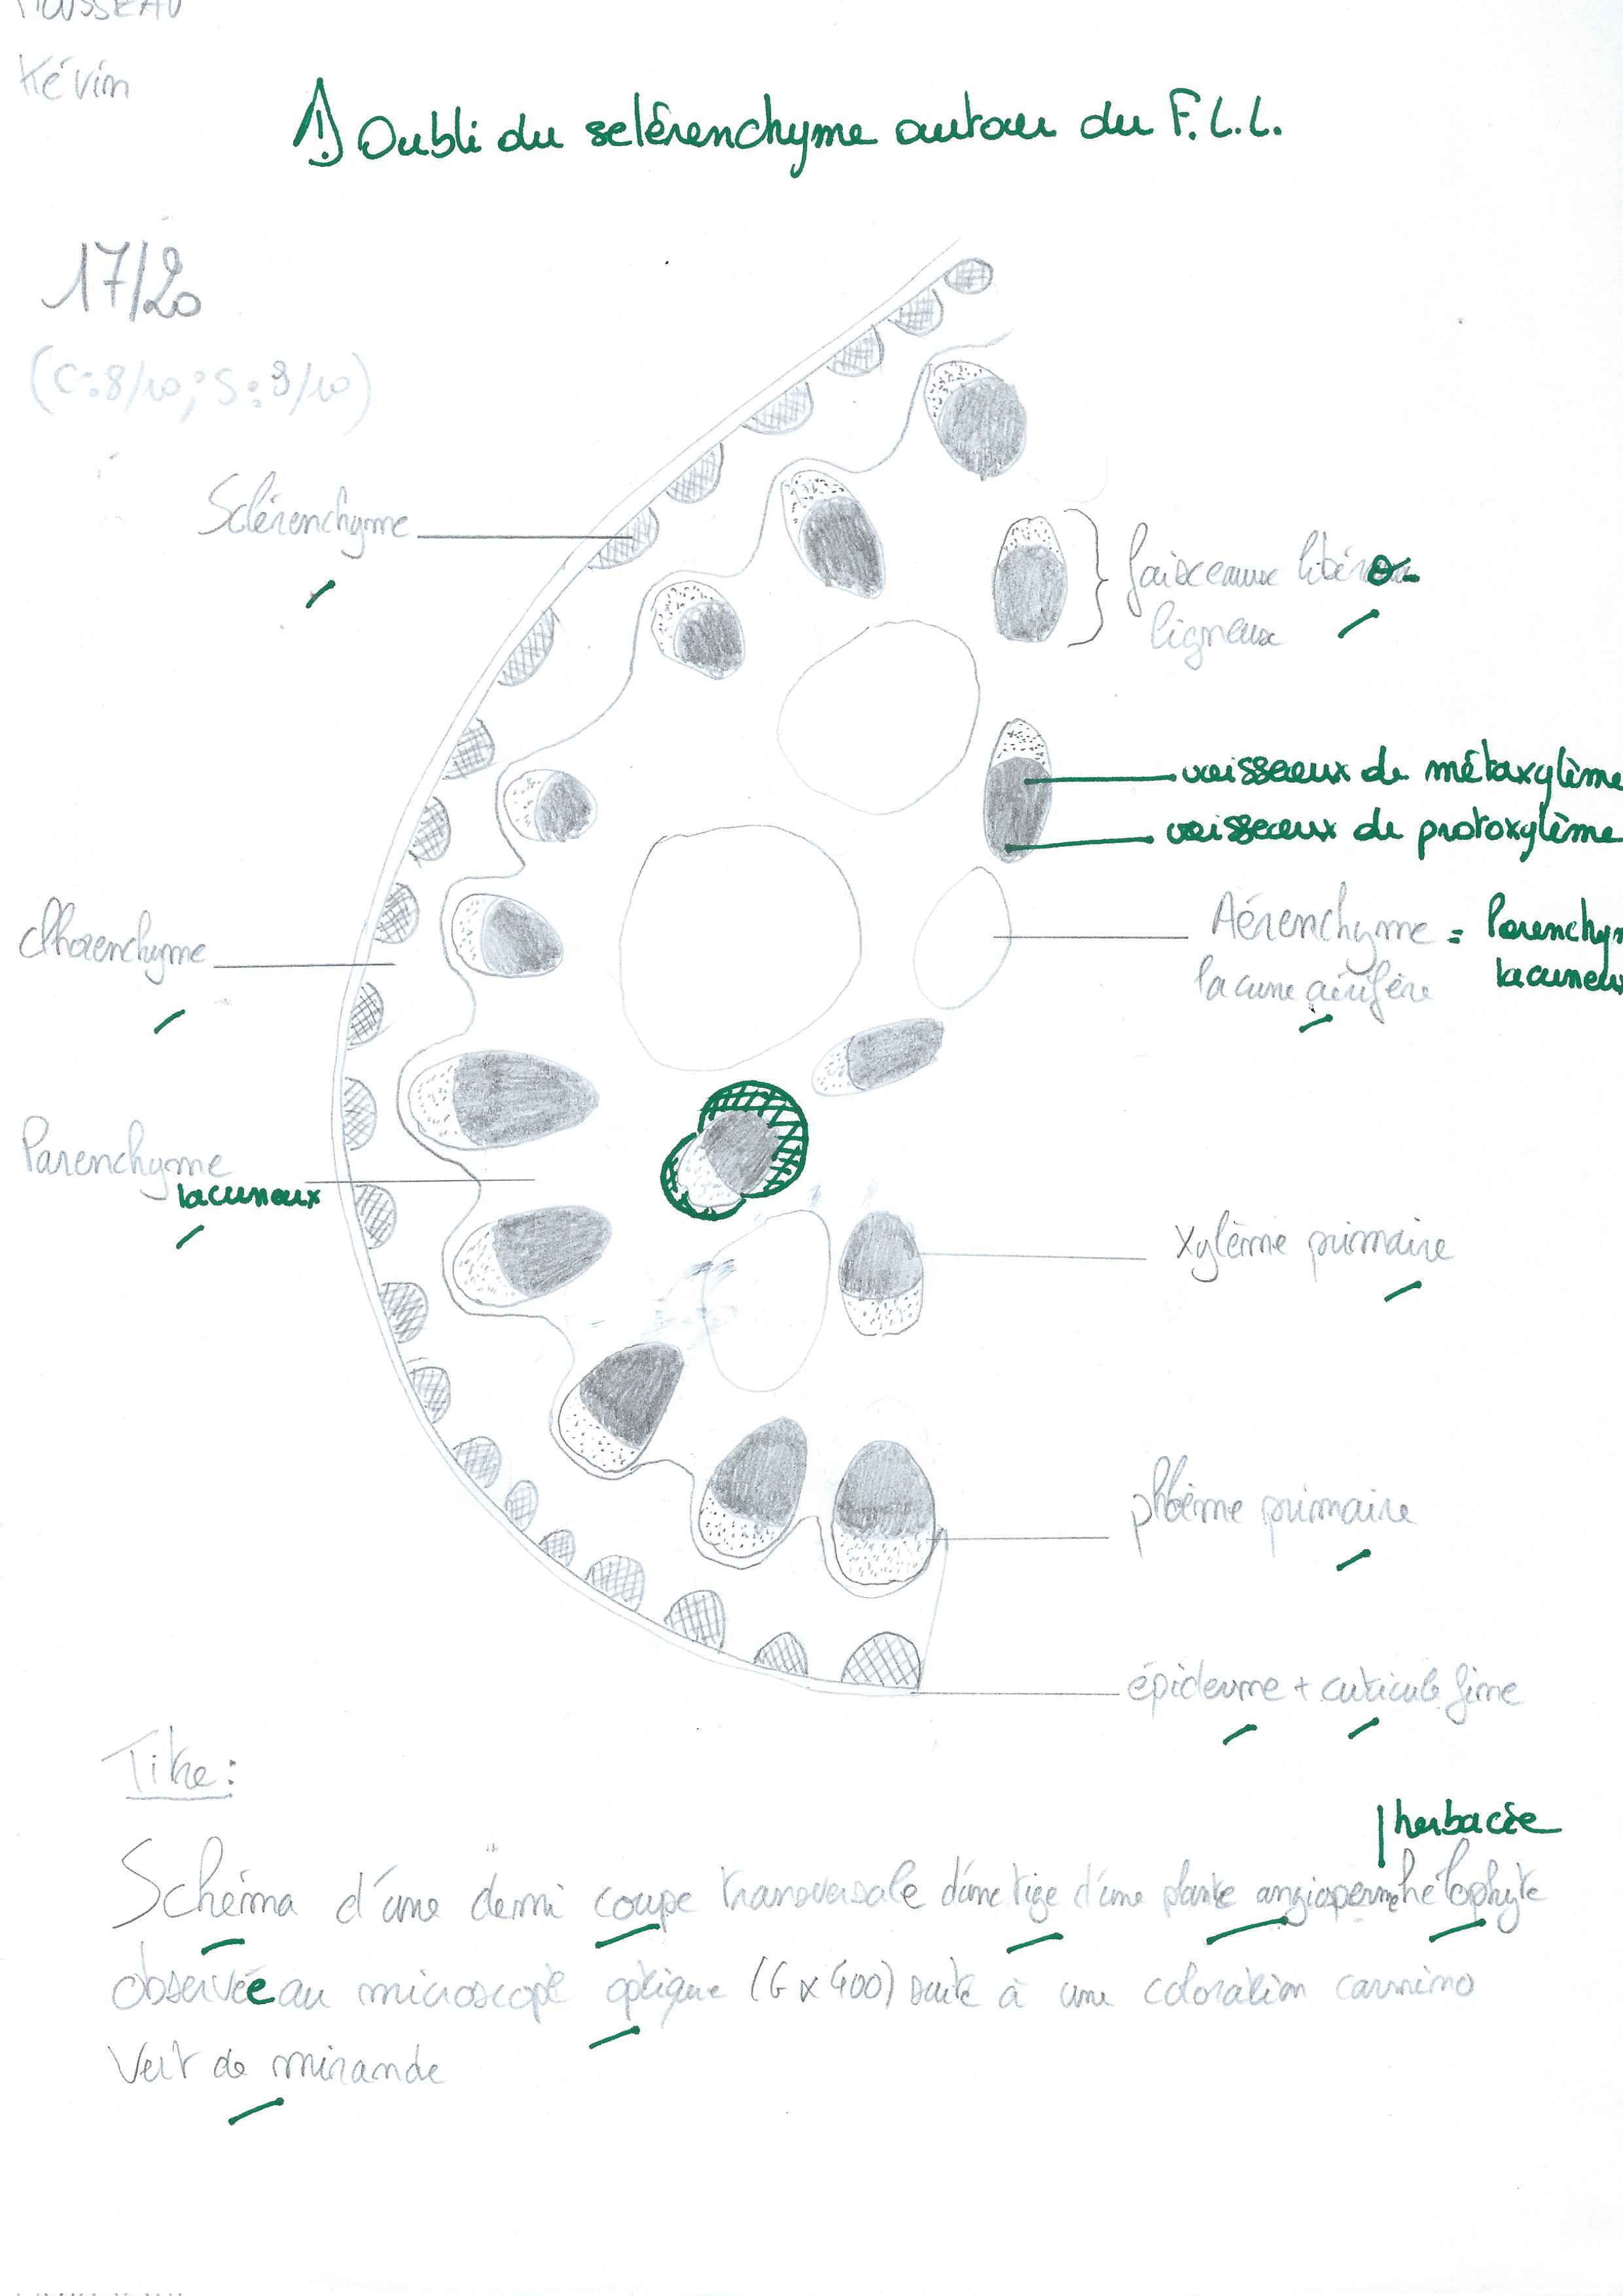 MOUSSEAU
Kévin
⚠ Oubli du sclérenchyme autour du F.L.L.
17/20
(C:8/10; S:9/10)
Sclérenchyme
faisceaux libéro-
ligneux
vaisseaux de métaxylème
vaisseaux de protoxylème
Chlorenchyme
Aérenchyme = Parenchym
lacune aérifère lacuneux
Parenchyme
lacuneux
xylème primaire
phloème primaire
épiderme + cuticule fine
Titre:
herbacée
Schéma d'une demi coupe transversale d'une tige d'une plante angiosperme hélophyte
observée au microscope optique (G x 400) suite à une coloration carmino
Vert de mirande